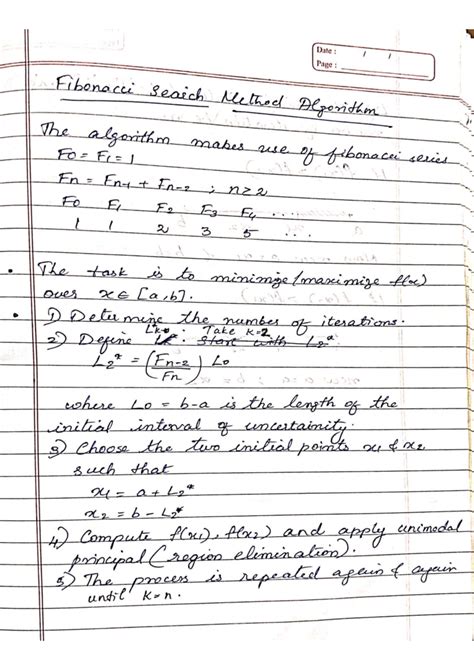 Date : / /
Page :
Fibonacci Search Method Algorithm
The algorithm makes use of fibonacci series
F0 = F1 = 1
Fn = Fn-1 + Fn-2 ; n≥2
F0 F1 F2 F3 F4 ...
1 1 2 3 5 ...
• The task is to minimize/maximize f(x)
over x ∈ [a, b].
• 1) Determine the number of iterations.
2) Define L*k : Take k=2
Start with L2*
L2* = (Fn-2/Fn) L0
where L0 = b-a is the length of the
initial interval of uncertainity.
3) Choose the two initial points x1 & x2
such that
x1 = a + L2*
x2 = b - L2*
4) Compute f(x1), f(x2) and apply unimodal
principal (region elimination).
5) The process is repeated again & again
until k=n.